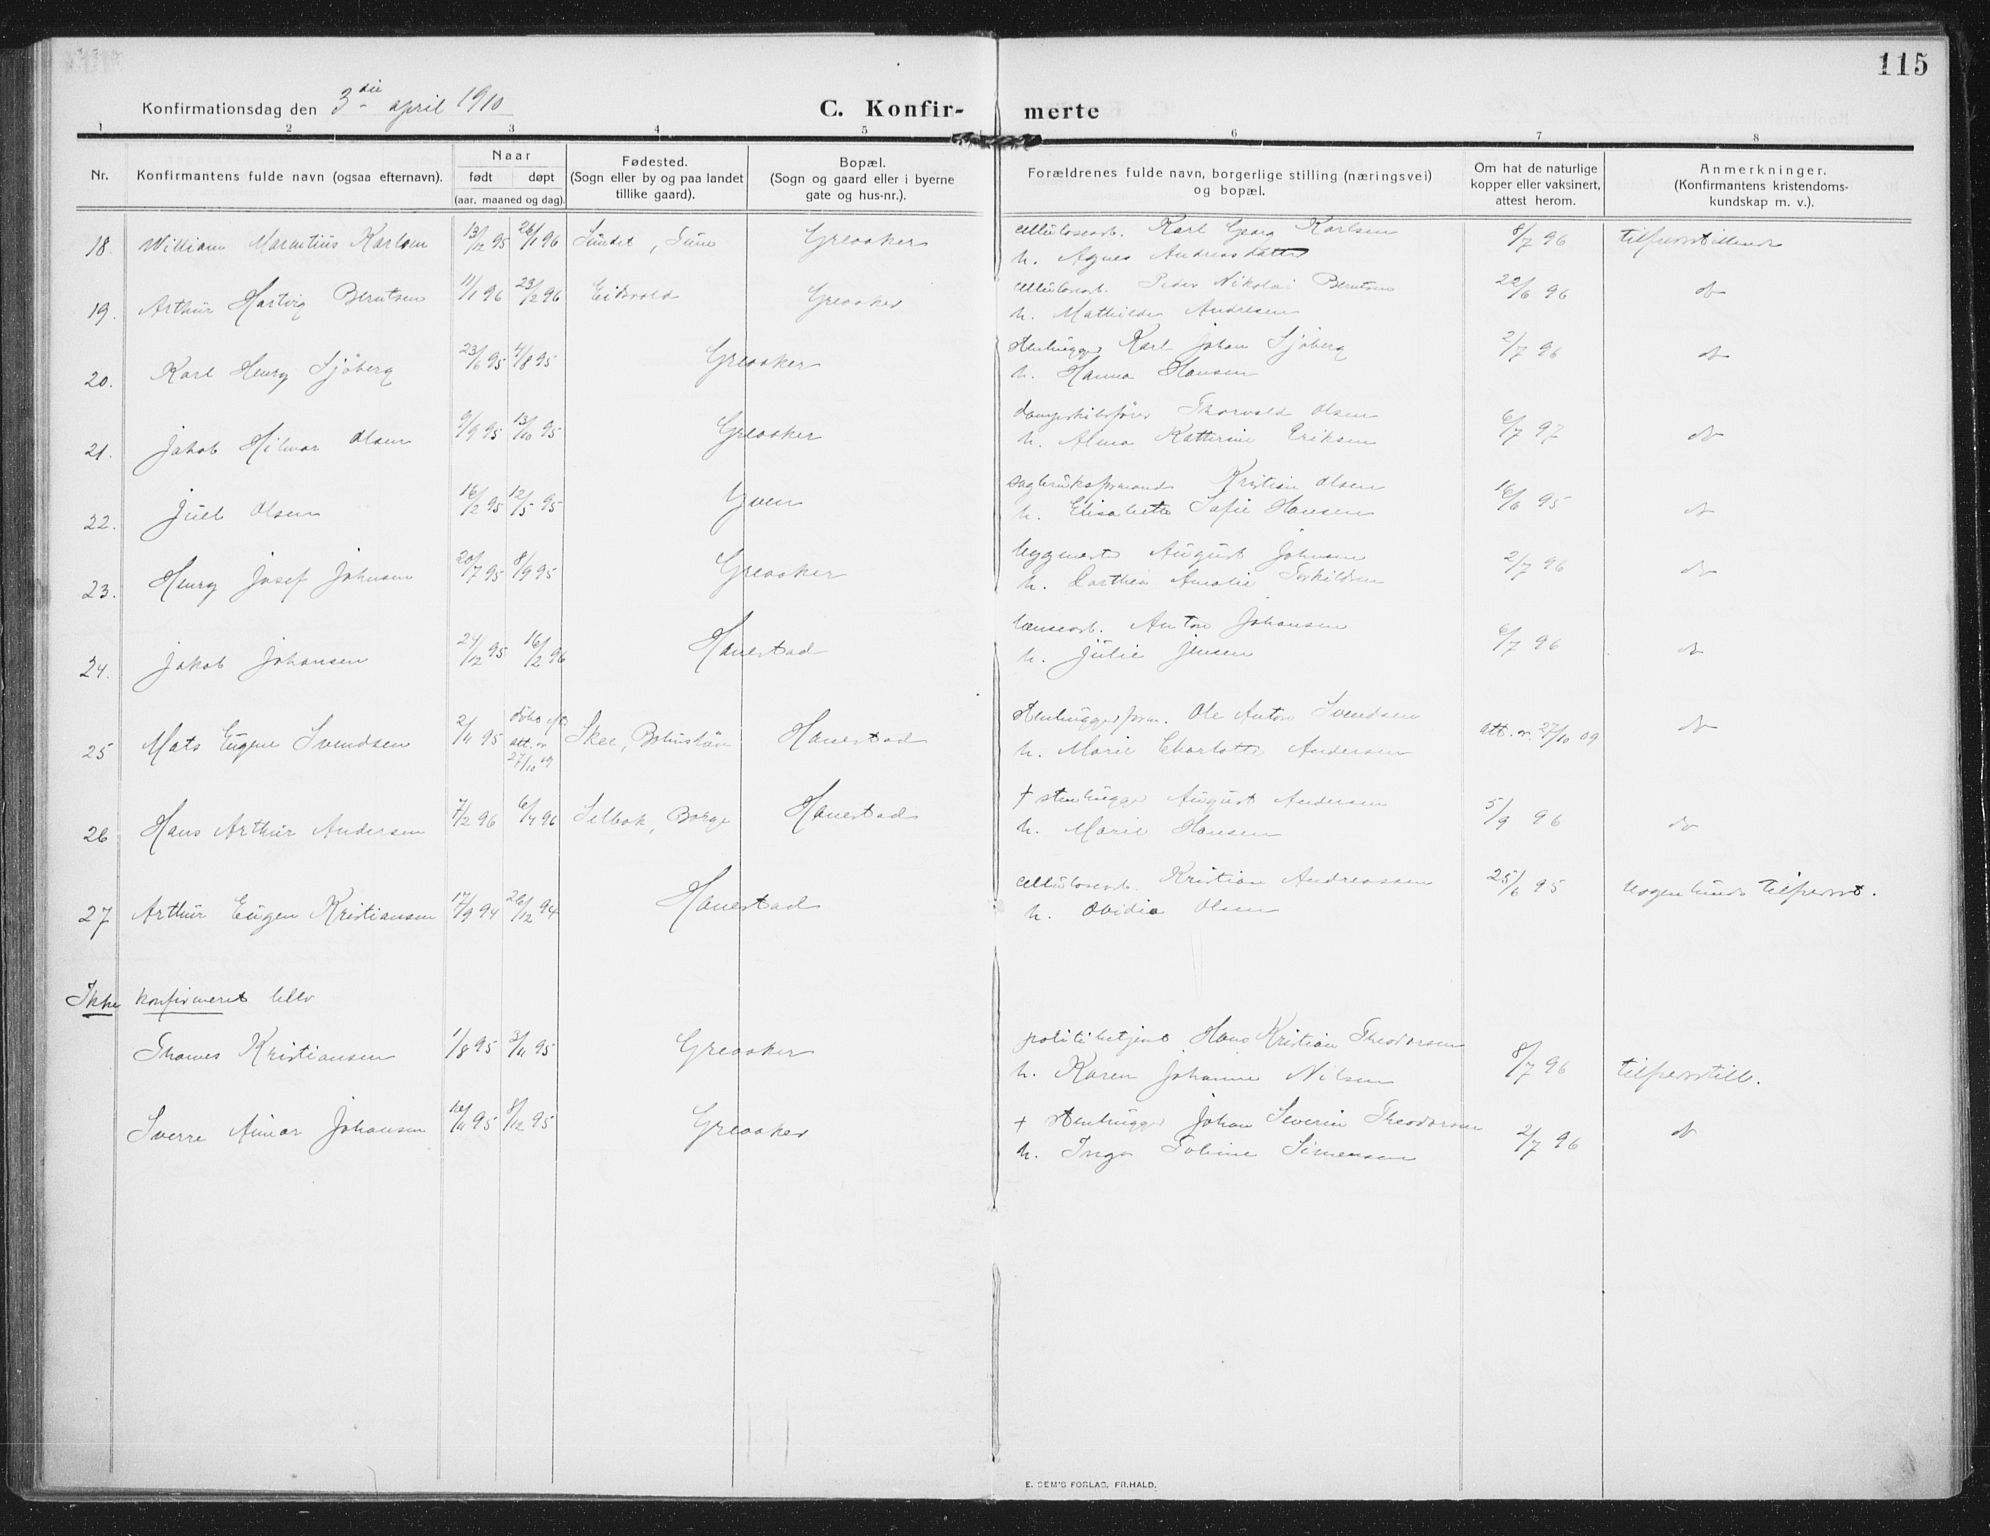 115
Konfirmationsdag den 3die april 1910
C. Konfir- merte
1 2 3 4 5 6 7 8
Nr. Konfirmantens fulde navn (ogsaa efternavn). Naar født døpt (aar, maaned og dag). Fødested. (Sogn eller by og paa landet tillike gaard). Bopæl. (Sogn og gaard eller i byerne gate og hus-nr.). Forældrenes fulde navn, borgerlige stilling (næringsvei) og bopæl. Om hat de naturlige kopper eller vaksinert, attest herom. Anmerkninger. (Konfirmantens kristendomskundskap m. v.).
18. William Marentius Karlsen 13/12 95 26/1 96 Sundet, Tune Greaaker cellulosearb. Karl Georg Karlsen 8/7 96 tilfredsstillende
h. Agnes Andreasdatter
19. Arthur Hartvig Berntsen 11/1 96 23/2 96 Eidsvold Greaaker cellulosearb. Peder Nikolai Berntsen 22/6 96 do
h. Mathilde Andresen
20. Karl Henry Sjöberg 23/6 95 4/8 95 Greaaker stenhugger Karl Johan Sjöberg 2/7 96 do
h. Hanna Hansen
21. Jakob Hilmar Olsen 9/9 95 13/10 95 Greaaker dampskibsfører Thorvald Olsen 6/7 97 do
h. Alma Kathrine Eriksen
22. Juel Olsen 16/2 95 12/5 95 Yven sagbruksformand Kristian Olsen 16/6 95 do
h. Elisabeth Sofie Hansen
23. Henry Josef Johnsen 20/7 95 8/9 95 Greaaker bygmest. August Johnsen 2/7 96 do
h. Dorthea Amalie Torkildsen
24. Jakob Johansen 24/12 95 16/2 96 Hanestad lænsearb. Anton Johansen 6/7 96 do
h. Julie Jensen
25 Mats Eugen Svendsen 2/11 95 att. av 27/10 09 Skee, Bohuslän Hanestad stenhuggerform. Ole Anton Svendsen att. av 27/10 09 do
h. Marie Charlotte Andersen
26 Hans Arthur Andersen 7/2 96 6/4 96 Selbak, Borge Hanestad † stenhugger August Andersen 5/9 96 do
h. Marie Hansen
27 Arthur Eugen Kristiansen 17/9 94 26/12 94 Hanestad cellulosearb. Kristian Andreassen 25/6 95 nogenlunde tilfredsst.
h. Ovidia Olsen
Ikke konfirmeret blev
Thomas Kristiansen 1/8 95 3/11 95 Greaaker politibetjent Hans Kristian Theodorsen 8/7 96 tilfredsstill.
h. Karen Johanne Nilsen
Sverre Aimar Johansen 10/11 95 8/12 95 Greaaker † stenhugger Johan Severin Theodorsen 2/7 96 do
h. Inga Toline Simensen
E. SEM'S FORLAG, FR.HALD.